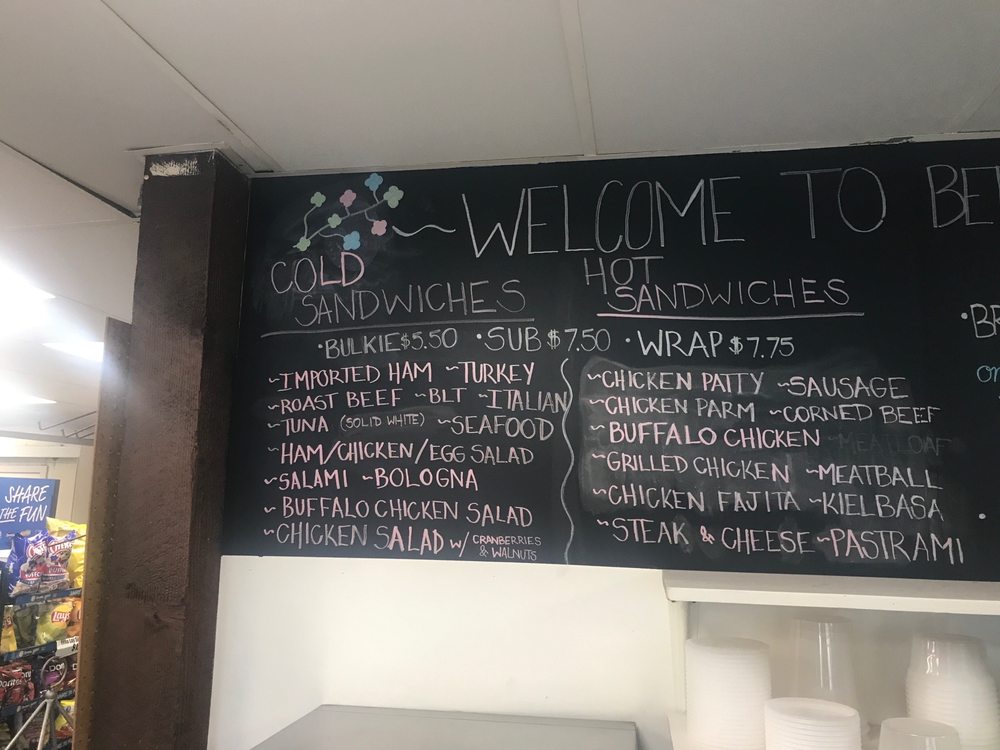 WELCOME TO BE
COLD
SANDWICHES
HOT
SANDWICHES
•BULKIE $5.50 •SUB $7.50 •WRAP $7.75
~IMPORTED HAM ~TURKEY
~ROAST BEEF ~BLT ~ITALIAN
~TUNA (SOLID WHITE) ~SEAFOOD
~HAM/CHICKEN/EGG SALAD
~SALAMI ~BOLOGNA
~BUFFALO CHICKEN SALAD
~CHICKEN SALAD W/ CRANBERRIES
& WALNUTS
~CHICKEN PATTY ~SAUSAGE
~CHICKEN PARM ~CORNED BEEF
~BUFFALO CHICKEN ~MEATLOAF
~GRILLED CHICKEN ~MEATBALL
~CHICKEN FAJITA ~KIELBASA
~STEAK & CHEESE ~PASTRAMI
•BR
on
SHARE
THE FUN
Lay's